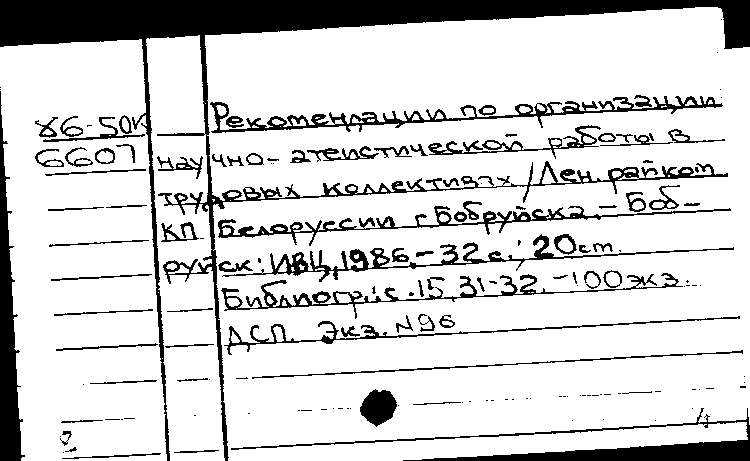 86-50к
6607
Рекомендации по организации
научно-атеистической работы в
трудовых коллективах / Лен. райком
КП Белоруссии г. Бобруйска. - Боб-
руйск: ИВЦ, 1986. - 32 с.; 20 см.
Библиогр.: с. 15, 31-32. - 100 экз.
ДСП. Экз. N 96